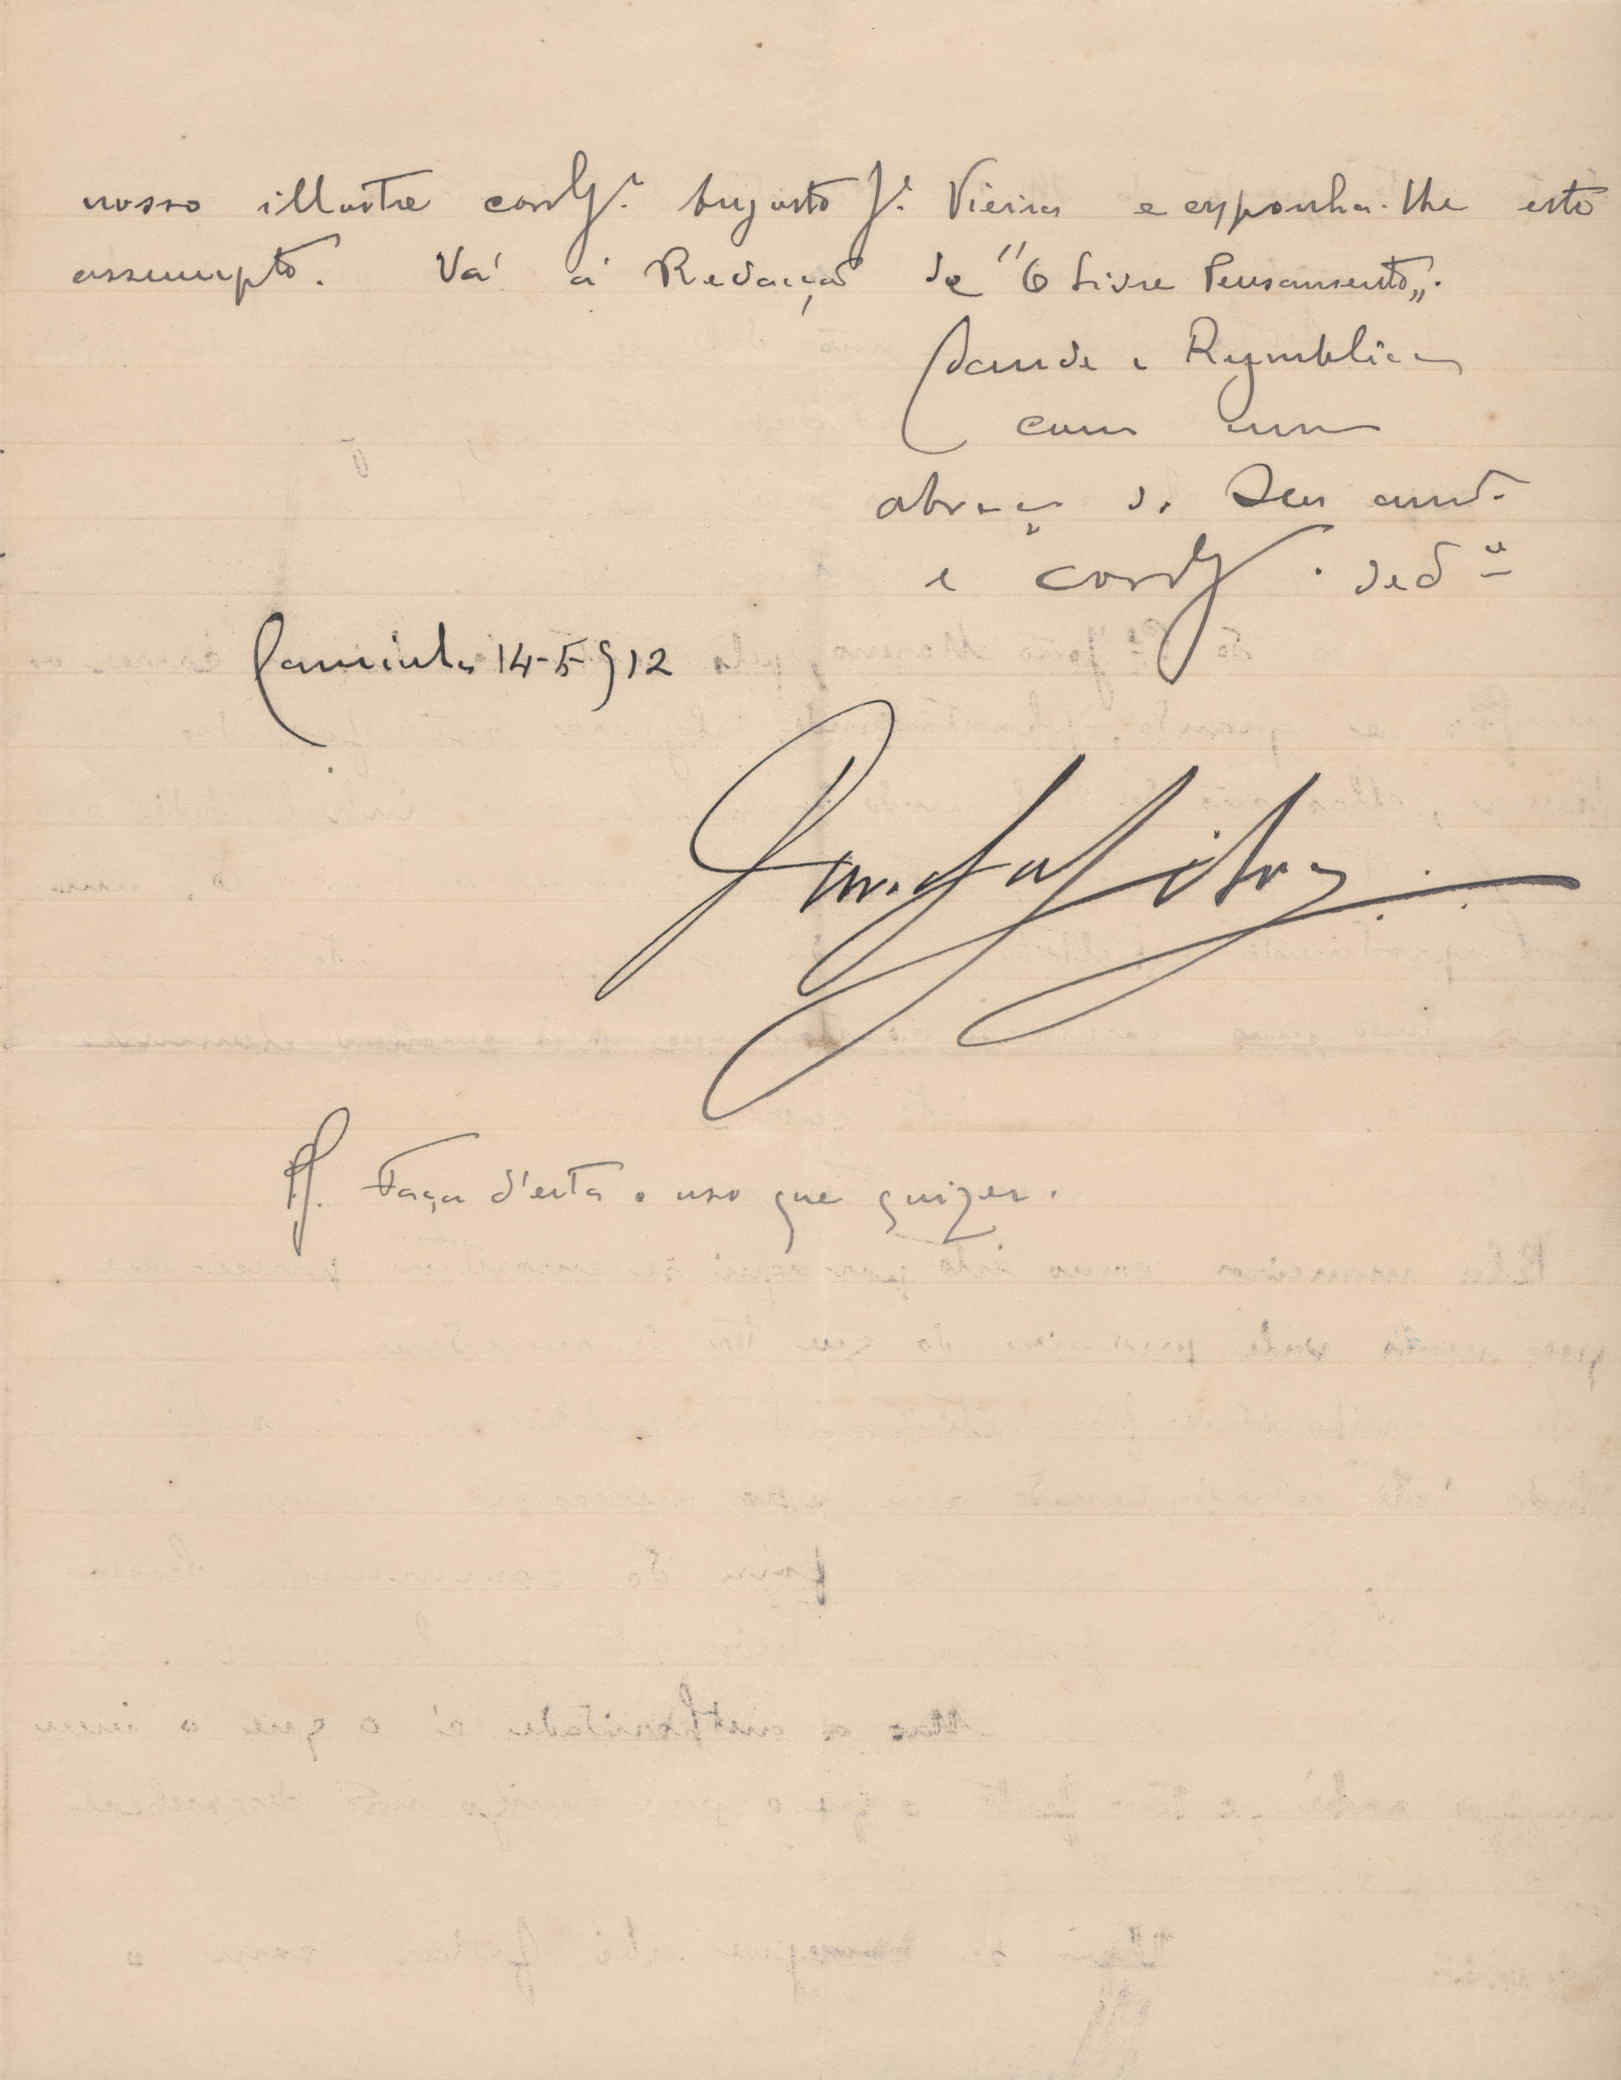 nosso illustre corrlg.º Augusto J.é Vieira e exponha-lhe este
assumpto. Vá á Redacção de "O Livre Pensamento„.
Saude e Republica
com um
abraço do seu amº.
e corrlg. dedº
Caminha 14-5-912
PS. Faça d'esta o uso que quizer.